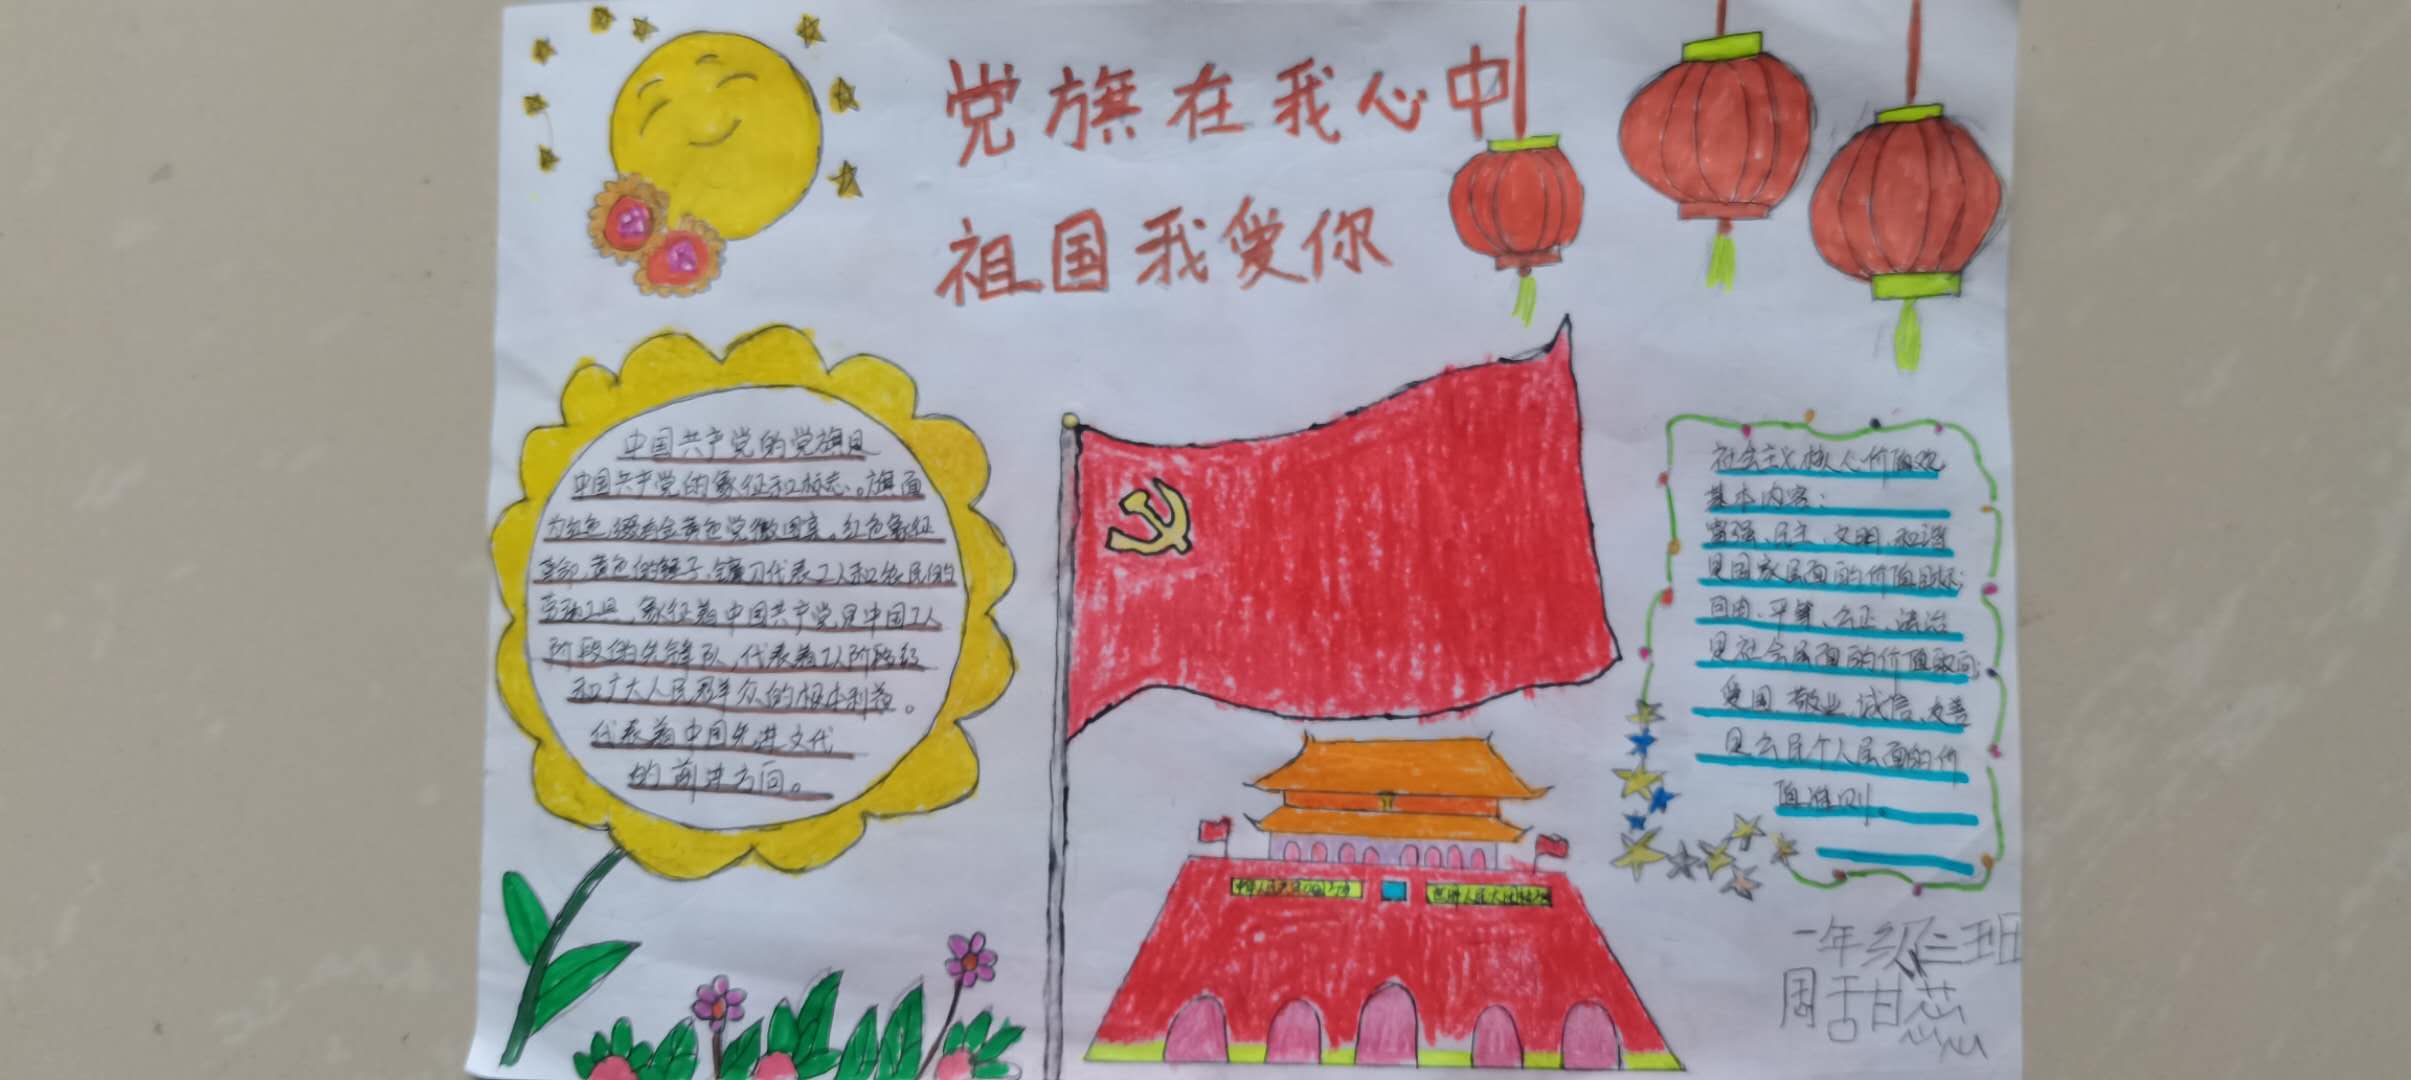 党旗在我心中
祖国我爱你
中国共产党的党旗是
中国共产党的象征和标志。旗面
为红色,缀有金黄色党徽图案。红色象征
革命,黄色的锤子、镰刀代表工人和农民的
劳动工具,象征着中国共产党是中国工人
阶段的先锋队,代表着工人阶段
和广大人民群众的根本利益。
代表着中国先进文代
的前进方向。
社会主义核心价值观
基本内容:
富强、民主、文明、和谐
是国家层面的价值目标;
自由、平等、公正、法治
是社会层面的价值取向;
爱国 敬业、诚信、友善
是公民个人层面的价
值准则。
一年级三班
周甜蕊